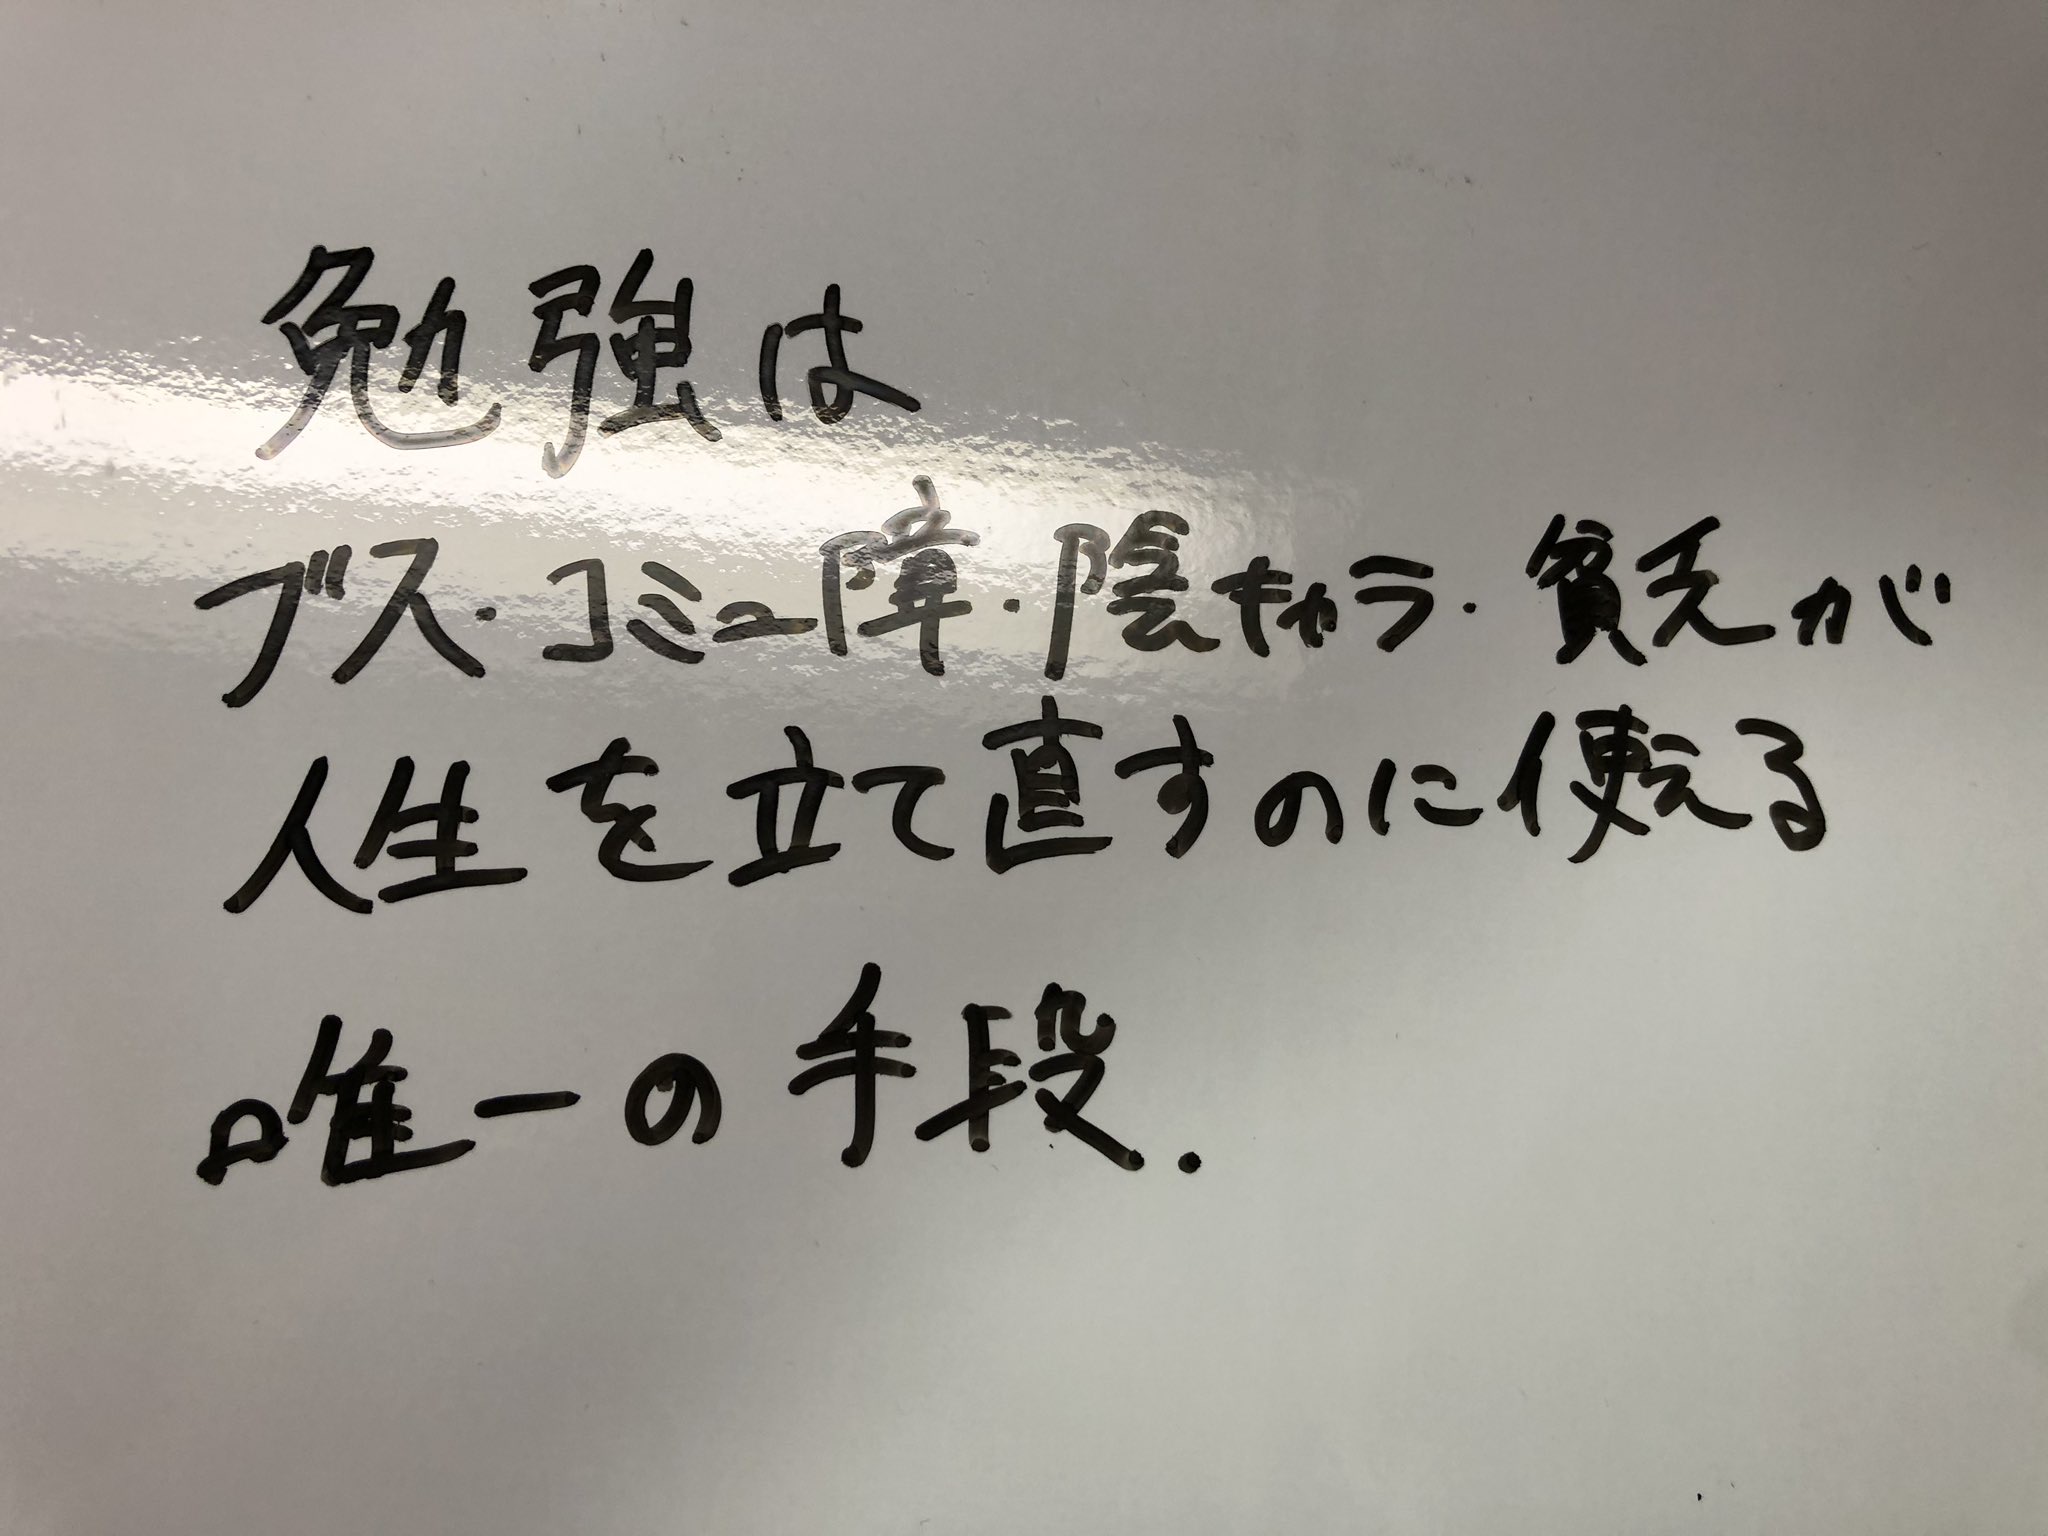 勉強は
ブス・コミュ障・陰キャラ・貧乏が
人生を立て直すのに使える
唯一の手段.